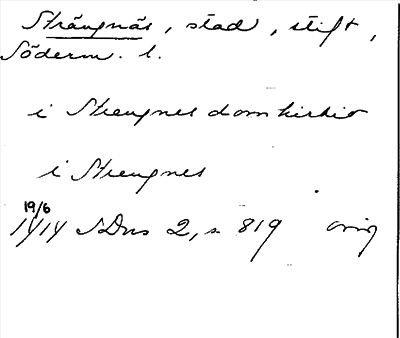 Strängnäs, stad, stift,
Söderm. l.
i Strengnes domkirkio
i Strengnes
19/6
1414 SDns 2, s 819 orig